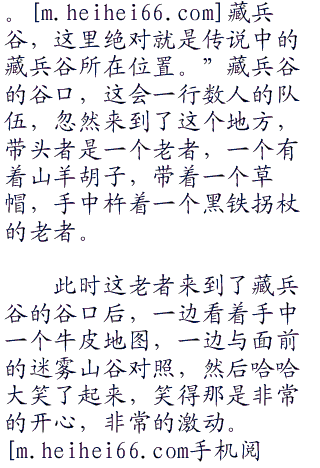 。[m.heihei66.com]藏兵
谷，这里绝对就是传说中的
藏兵谷所在位置。”藏兵谷
的谷口，这会一行数人的队
伍，忽然来到了这个地方，
带头者是一个老者，一个有
着山羊胡子，带着一个草
帽，手中杵着一个黑铁拐杖
的老者。
此时这老者来到了藏兵
谷的谷口后，一边看着手中
一个牛皮地图，一边与面前
的迷雾山谷对照，然后哈哈
大笑了起来，笑得那是非常
的开心，非常的激动。
[m.heihei66.com手机阅